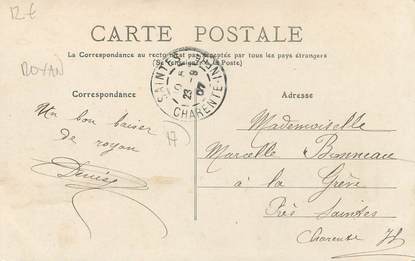 12 €
ROYAN
CARTE POSTALE
La Correspondance au recto n'est pas acceptée par tous les pays étrangers
(Se renseigner à la Poste)
Correspondance
Adresse
23 - 9
07
CHARENTE-INF
Un bon baiser
de royan
Denise
17
Mademoiselle
Marcelle Bonneau
à la Grève
Près Saintes
Charente If